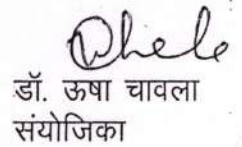 डॉ. ऊषा चावला
संयोजिका